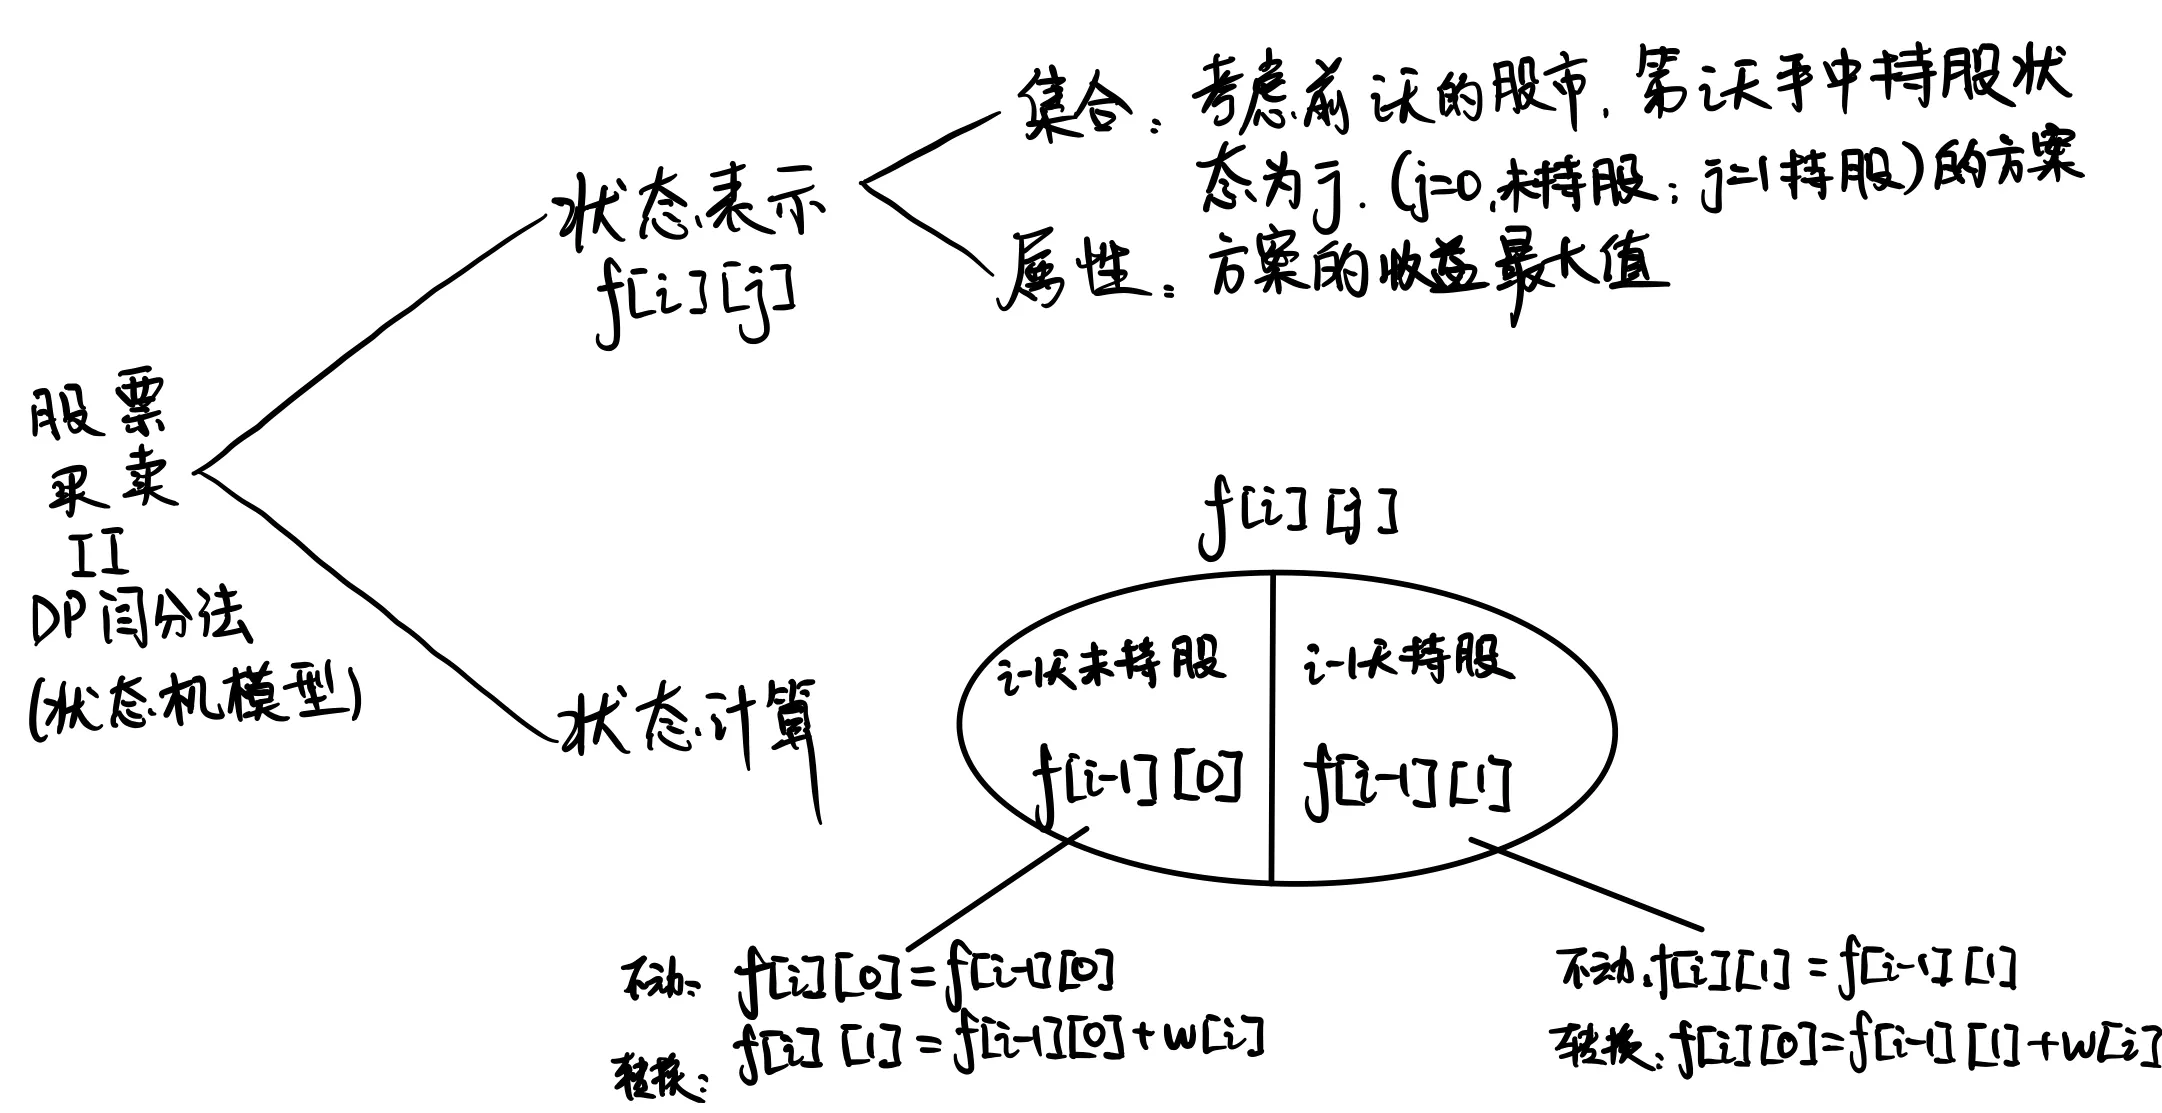 股票
买卖
II
DP闫分法
(状态机模型)
状态表示
f[i][j]
集合：考虑前i天的股市，第i天手中持股状
态为j. (j=0,未持股；j=1持股)的方案
属性：方案的收益最大值
状态计算
f[i][j]
i-1天未持股
i-1天持股
f[i-1][0]
f[i-1][1]
不动: f[i][0]=f[i-1][0]
转换: f[i][1]=f[i-1][0]+w[i]
不动: f[i][1]=f[i-1][1]
转换: f[i][0]=f[i-1][1]+w[i]